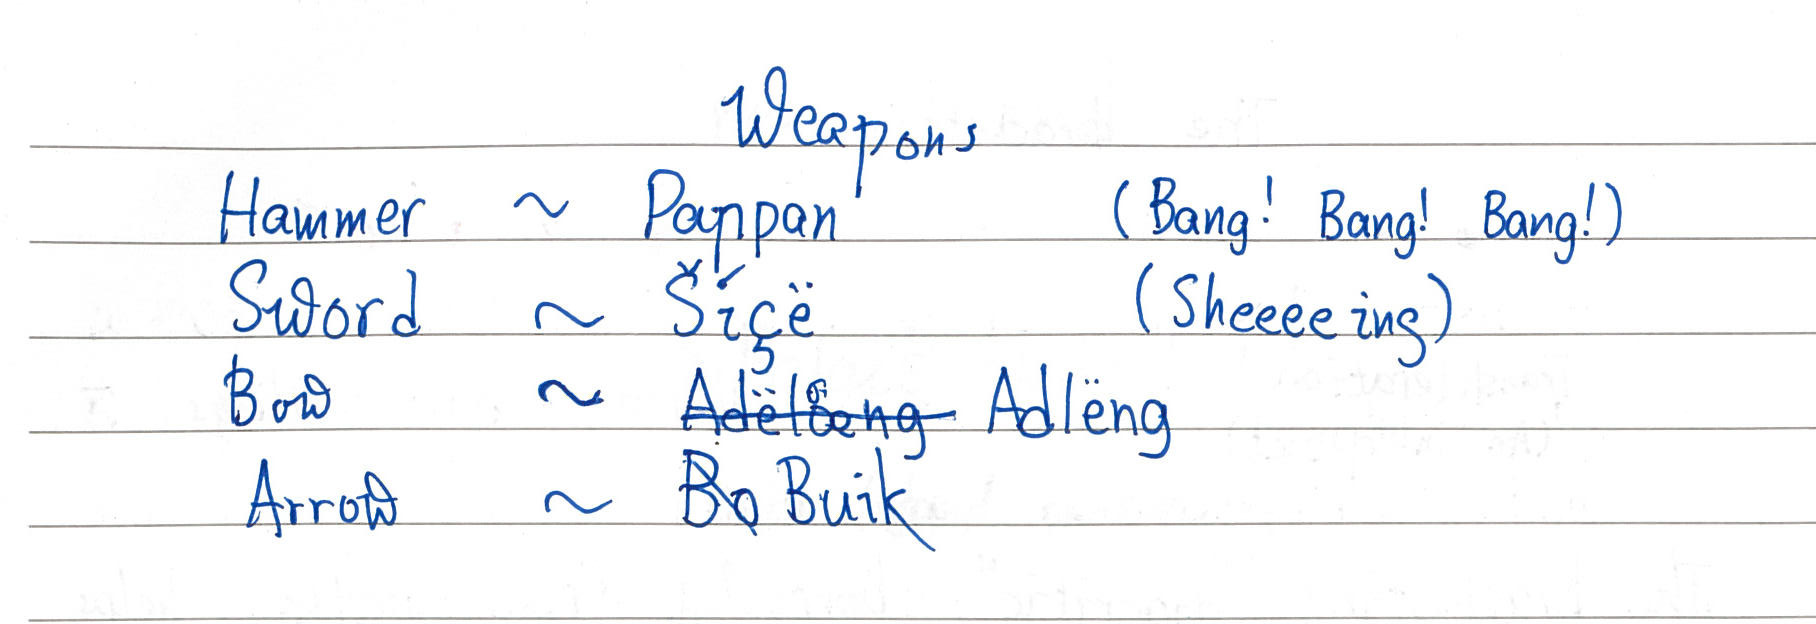 Weapons
Hammer ~ Paŋpan (Bang! Bang! Bang!)
Sword ~ Šíçë (Sheeeeing)
Bow ~ Adlëng
Arrow ~ Buik